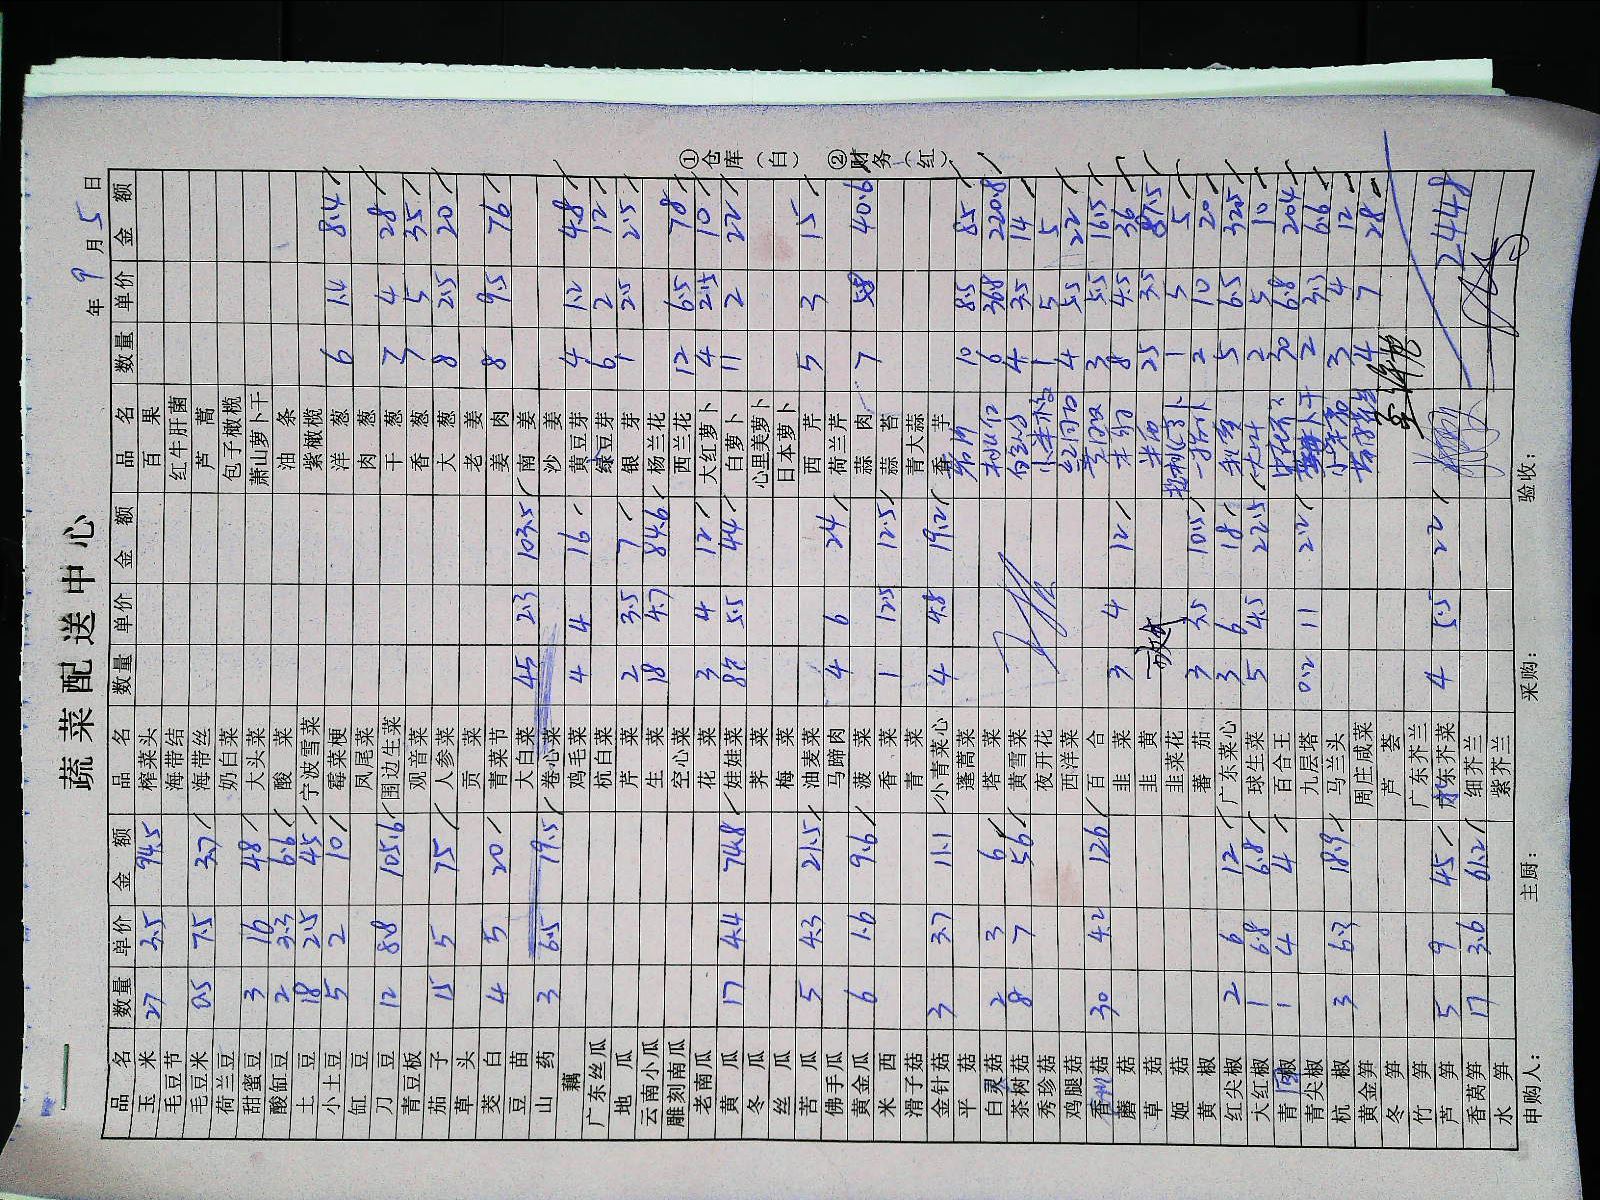 蔬菜配送中心
年 9 月 5 日
品名 数量 单价 金额 品名 数量 单价 金额 品名 数量 单价 金额
玉米 27 3.5 94.5 榨菜头 百果
毛豆节 海带结 红牛肝菌
毛豆米 0.5 7.5 3.7 海带丝 芦蒿
荷兰豆 奶白菜 包子橄榄
甜蜜豆 3 16 48 大头菜 萧山萝卜干
酸缸豆 2 3.3 6.6 酸菜 油条
土豆 18 2.5 45 宁波雪菜 紫橄榄
小土豆 5 2 10 霉菜梗 洋葱 6 1.4 8.4
缸豆 凤尾菜 肉葱
刀豆 12 8.8 105.6 围边生菜 干葱 7 4 28
青豆板 观音菜 香葱 7 5 35
茄子 15 5 75 人参菜 大葱 8 2.5 20
草头 贡菜 老姜
茭白 4 5 20 青菜节 姜肉 8 9.5 76
豆苗 大白菜 45 2.3 103.5 南姜
山药 3 6.5 19.5 卷心菜 沙姜
藕 鸡毛菜 4 4 16 黄豆芽 4 1.2 4.8
广东丝瓜 杭白菜 绿豆芽 6 2 12
地瓜 芹菜 2 3.5 7 银芽 1 2.5 2.5
云南小瓜 生菜 18 4.7 84.6 杨兰花
雕刻南瓜 空心菜 西兰花 12 6.5 78
老南瓜 花菜 3 4 12 大红萝卜 4 2.5 10
黄瓜 17 4.4 74.8 娃娃菜 8 5.5 44 白萝卜 11 2 22
冬瓜 荠菜 心里美萝卜
丝瓜 梅菜 日本萝卜
苦瓜 5 4.3 21.5 油麦菜 西芹 5 3 15
佛手瓜 马蹄肉 4 6 24 荷兰芹
黄金瓜 6 1.6 9.6 菠菜 蒜肉 7 5.8 40.6
米西 香菜 1 12.5 12.5 蒜苔
滑子菇 青菜 青大蒜
金针菇 3 3.7 11.1 小青菜心 4 4.8 19.2 香芋
平菇 蓬蒿菜 10 8.5 85
白灵菇 2 3 6 塔菜 6 36.8 220.8
茶树菇 8 7 56 黄雪菜 4 3.5 14
秀珍菇 夜开花 1 5 5
鸡腿菇 西洋菜 4 5.5 22
香菇 30 4.2 126 百合 3 5.5 16.5
蘑菇 韭菜 3 4 12 8 4.5 36
草菇 韭黄 25 3.5 87.5
姬菇 韭菜花 1 5 5
黄椒 蕃茄 3 3.5 10.5 2 10 20
红尖椒 2 6 12 广东菜心 3 6 18 5 6.5 32.5
大红椒 1 6.8 6.8 球生菜 5 4.5 22.5 2 5 10
青圆椒 1 4 4 百合王 30 6.8 204
青尖椒 九层塔 0.2 11 2.2 2 3.3 6.6
杭椒 3 6.3 18.9 马兰头 3 4 12
黄金笋 周庄咸菜 4 7 28
冬笋 芦荟
竹笋 广东芥兰
芦笋 5 9 45 广东芥菜 4 5.5 22 2448
香莴笋 17 3.6 61.2 细芥兰
水笋 紫芥兰
申购人： 主厨： 采购： 验收：
①仓库（白） ②财务（红）